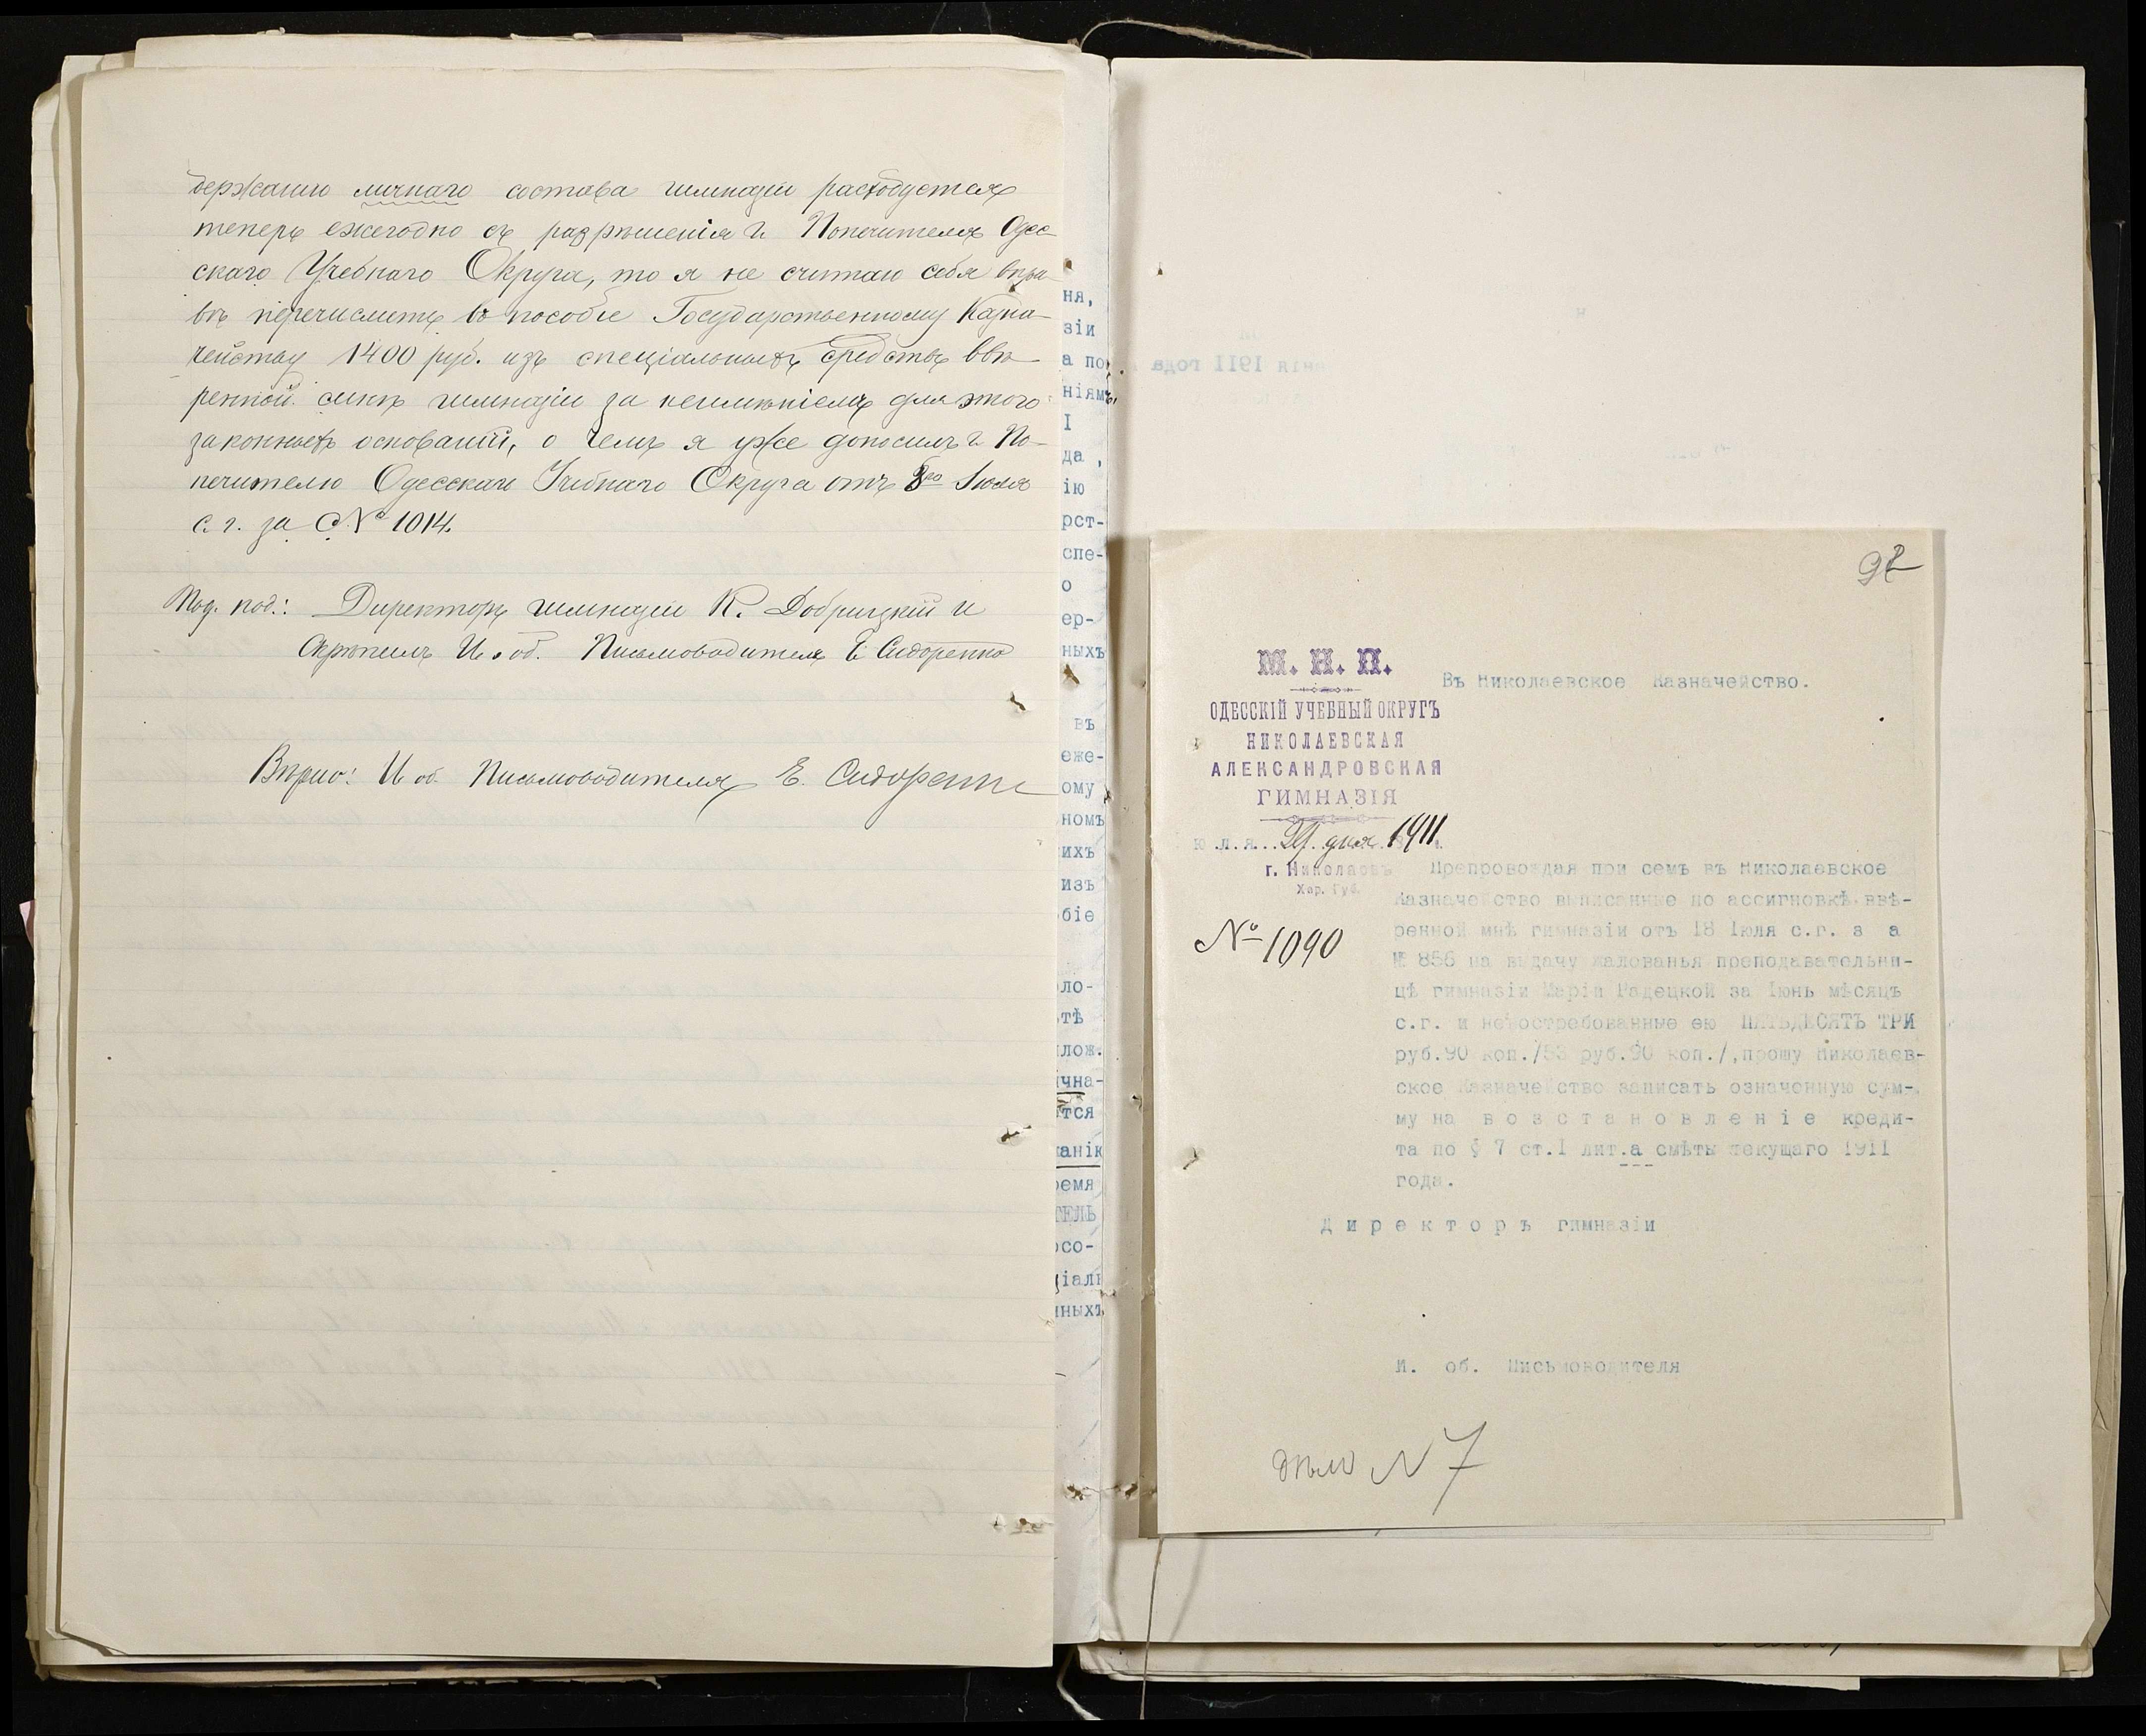 держанiю личнаго состава гимназiи расходуется
теперь ежегодно съ разрѣшенiя г. Попечителя Одес
скаго Учебнаго Округа, то я не считаю себя впра-
вѣ перечислить въ пособiе Государственному Казна-
чейству 1400 руб. изъ спецiальныхъ средствъ ввѣ-
ренной мнѣ гимназiи за неимѣнiемъ для этого
законныхъ основанiй, о чемъ я уже доносилъ г. По-
печителю Одесскаго Учебнаго Округа отъ 8го Iюля
с. г. за № 1014.
Под. под.: Директоръ гимназiи К. Добрицкiй и
скрѣпилъ И. об. Письмоводителя Е. Сидоренко
Вѣрно: И об. Письмоводителя Е. Сидоренко
ня,
зiи
а по
нiямъ,
I
да ,
iю
рст-
спе-
о
ер-
ныхъ
въ
еже-
ому
номъ
ихъ
изъ
бiе
ло-
тѣ
лож.
ична-
тся
анiю
емя
ТЕЛЬ
осо-
цiаль
нныхъ
92
М. Н. П.
ОДЕССКIЙ УЧЕБНЫЙ ОКРУГЪ
НИКОЛАЕВСКАЯ
АЛЕКСАНДРОВСКАЯ
ГИМНАЗIЯ
ю л я 29 дня 1911
г. Николаевъ
Хер. Губ.
№ 1090
Въ Николаевское Казначейство.
Препровождая при семъ въ Николаевское
Казначейство выписанные по ассигновкѣ ввѣ-
ренной мнѣ гимназiи отъ 18 Iюля с.г. з а
№ 856 на выдачу жалованья преподавательни-
цѣ гимназiи Марiи Радецкой за Iюнь мѣсяцъ
с.г. и невостребованные ею ПЯТЬДЕСЯТЪ ТРИ
руб.90 коп./53 руб.90 коп./,прошу Николаев-
ское Казначейство записать означенную сум-
му на в о з с т а н о в л е н i е креди-
та по § 7 ст.I лит.а смѣты текущаго 1911
года.
Д и р е к т о р ъ гимназiи
И. об. Письмоводителя
дѣло N 7